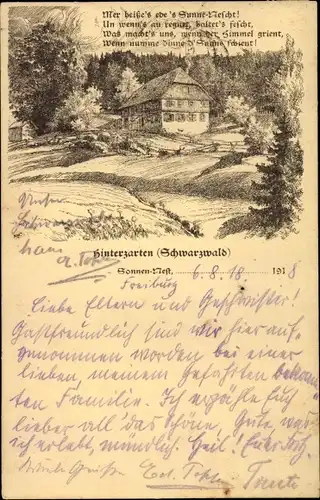 Mer heiße's ebe's Sunne-Nescht!
Un wenn's au regnet, haltet's fescht,
Was macht's uns, wenn der Himmel grient,
Wenn numme dinne d'Sunne schient!
Unser
haus
Hinterzarten (Schwarzwald)
Sonnen-Nest, 6.8.18 1918
Freiburg
Liebe Eltern und Geschwister!
Gastfreundlich sind wir hier auf-
genommen worden bei einer
lieben, meinem Gefährten bekann-
ten Familie. Ich erzähle Euch
lieber all' das Schöne, Gute, was
ich erlebt, mündlich. Heil! Euer
Viele Grüße